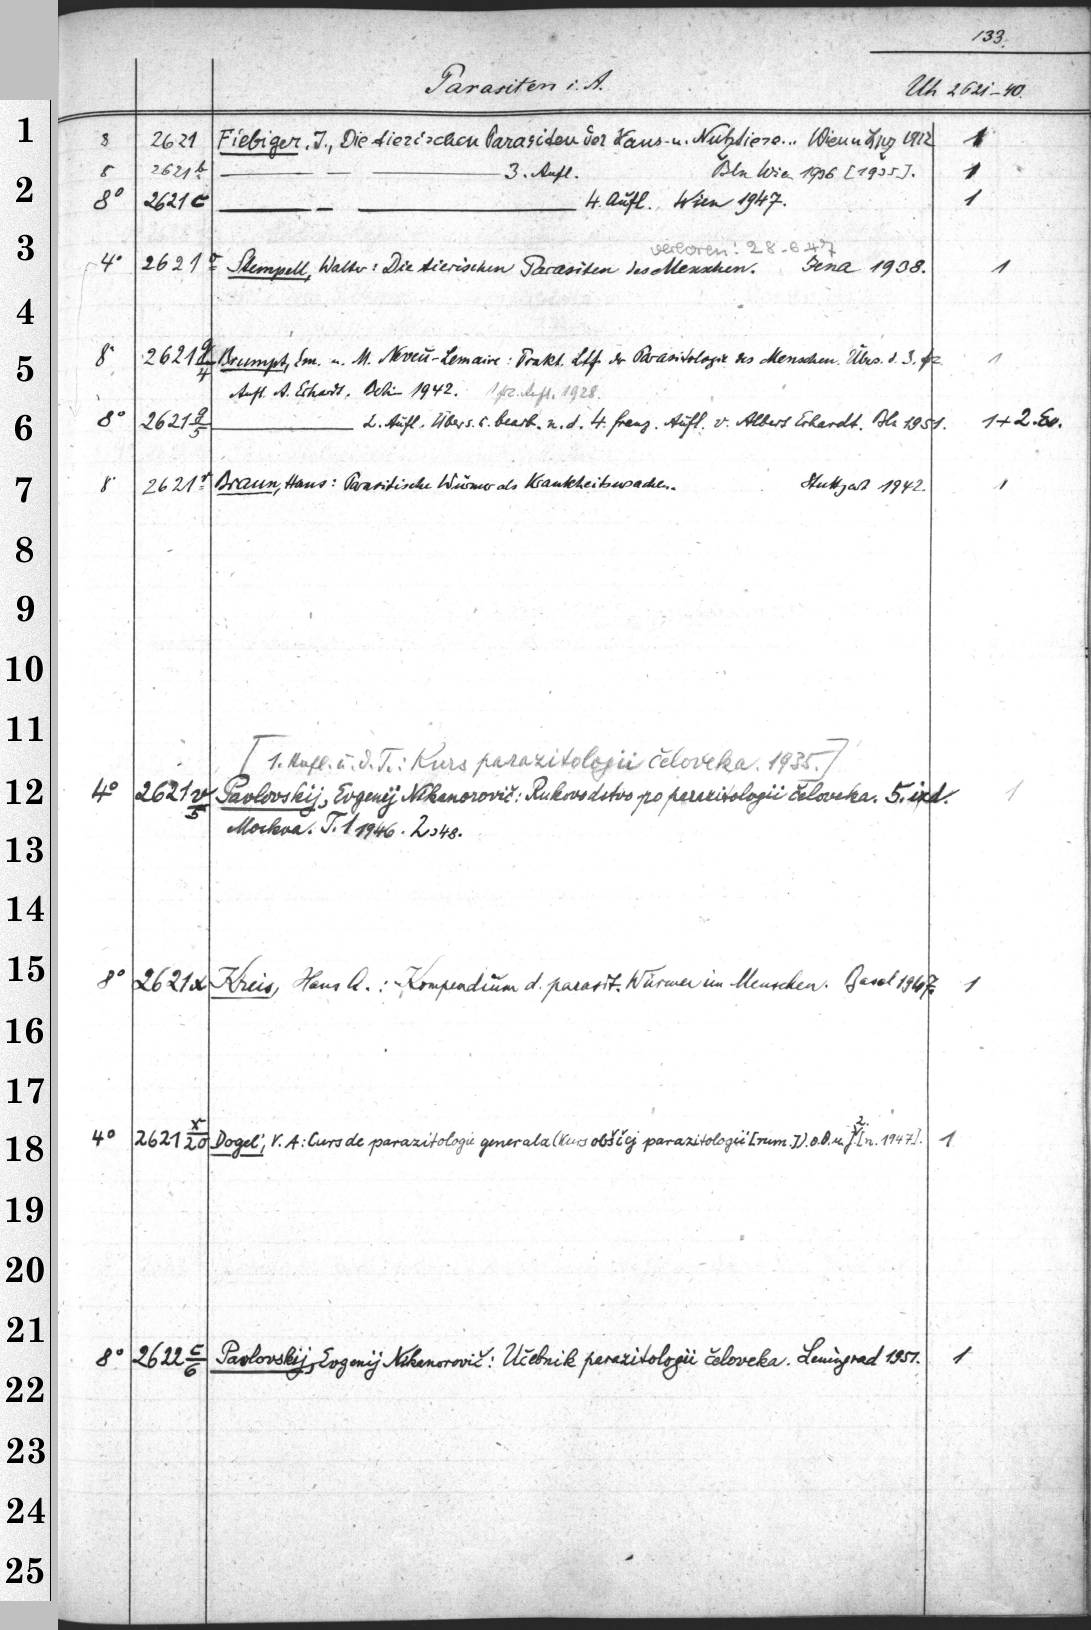 133.
Parasiten i. A. Uh 2621-40.
1
8 2621 Fiebiger, J., Die tierischen Parasiten der Haus- u. Nutztiere... Wien u. Lpz 1912 1
8 2621 b 3. Aufl. Bln Wien 1936 [1935]. 1
2
8° 2621 c 4. Aufl. Wien 1947. 1
3
verloren: 28.6.47
4° 2621 Stempell, Walter: Die tierischen Parasiten des Menschen. Jena 1938. 1
4
8° 2621 q/4 Brumpt, Em. u. M. Neveu-Lemaire: Prakt. Ltf. der Parasitologie des Menschen. Übers. d. 3. frz.
1
5
Aufl. A. Erhardt. Berlin 1942. 1 frz. Aufl. 1928.
6
8° 2621 q/5 2. Aufl. Übers. u. bearb. n. d. 4. franz. Aufl. v. Albert Erhardt. Bln 1951. 1+2.Ex.
7
8° 2621 r Braun, Hans: Parasitische Würmer als Krankheitsursachen. Stuttgart 1942. 1
8
9
10
11
[1. Aufl. u. d. T.: Kurs parazitologii čeloveka. 1935.]
12
4° 2621 v/5 Pavlovskij, Evgenij Nikanorovič: Rukovodstvo po parazitologii čeloveka. 5. izd. 1
Moskva. T. 1 1946. 2 48.
13
14
15
8° 2621 x Kreis, Hans A.: Kompendium d. parasit. Würmer im Menschen. Basel 1947. 1
16
17
18
4° 2621 x/20 Dogel', V. A.: Curs de parazitologie generala (Kurs obščej parazitologii [rum.]). o.O. u. J. [n. 1947]. 1
2.
19
20
21
8° 2622 c/6 Pavlovskij, Evgenij Nikanorovič: Učebnik parazitologii čeloveka. Leningrad 1951. 1
22
23
24
25